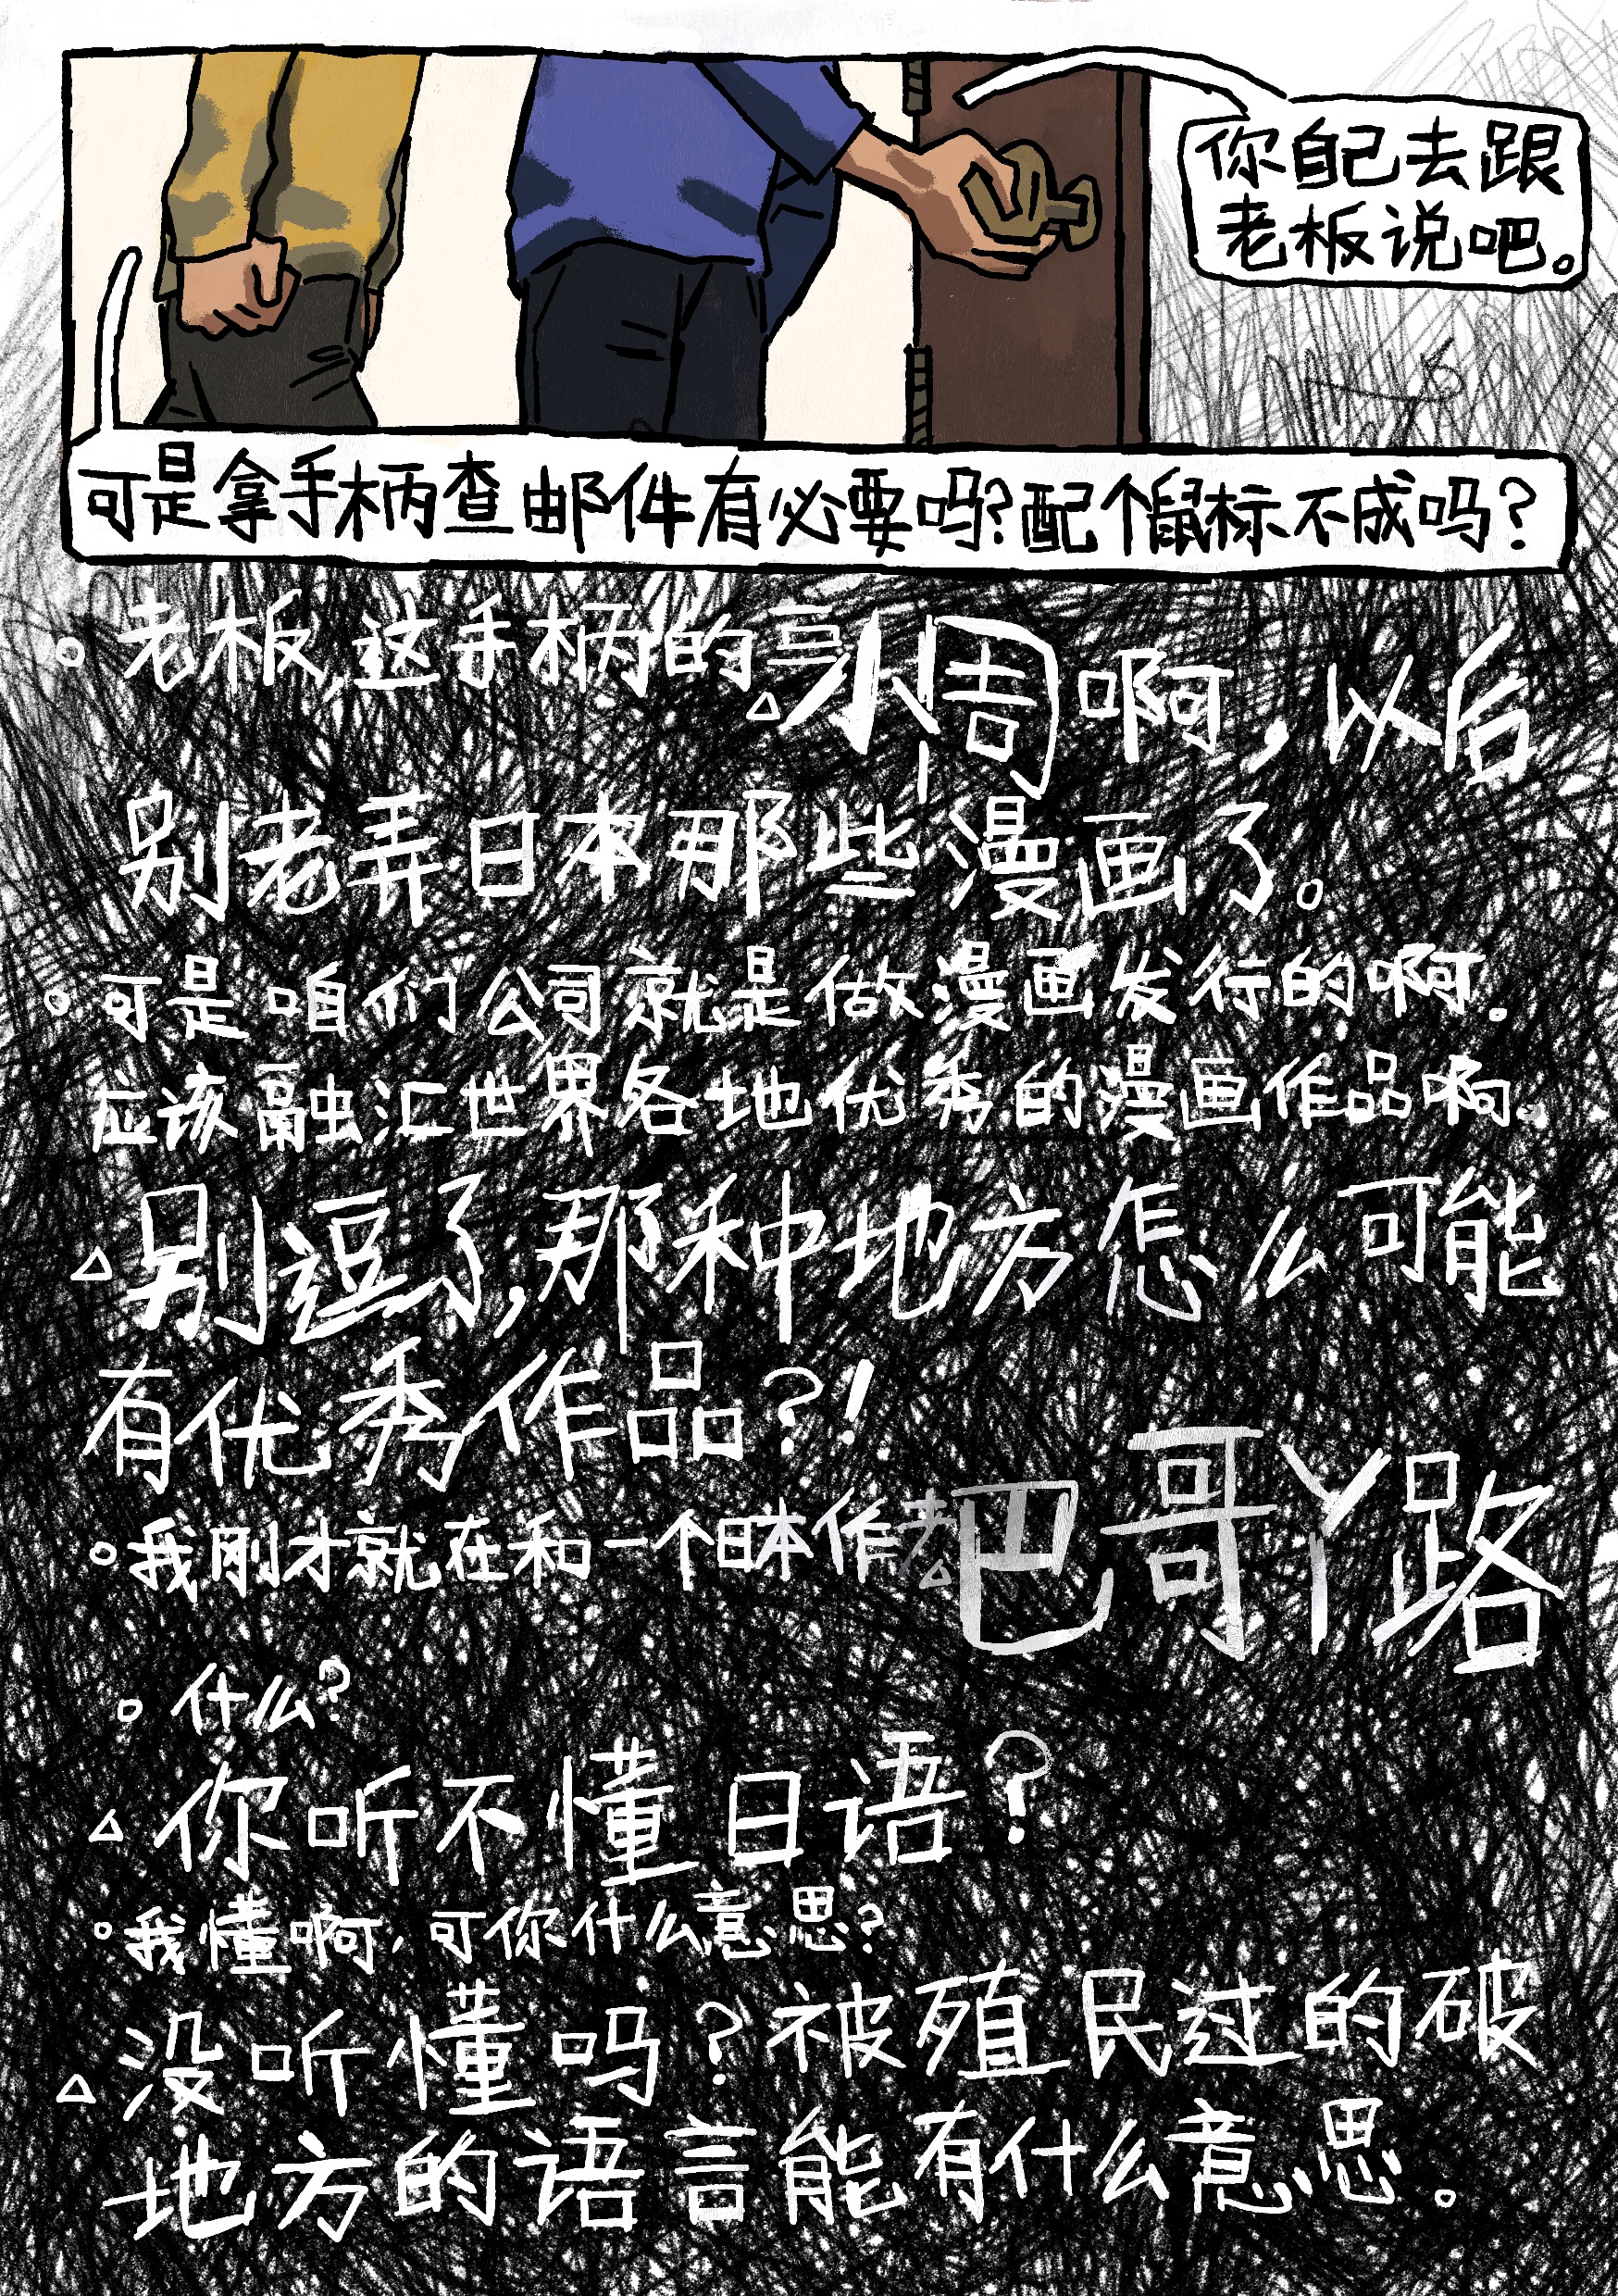 你自己去跟
老板说吧。
可是拿手柄查邮件有必要吗?配个鼠标不成吗?
老板,这手柄的 小周啊,以后
别老弄日本那些漫画了。
可是咱们公司就是做漫画发行的啊.
应该融汇世界各地优秀的漫画作品啊。
别逗了,那种地方怎么可能
有优秀作品?!
我刚才就在和一个日本作 把哥丫路
什么?
你听不懂日语?
我懂啊,可你什么意思?
没听懂吗?被殖民过的破
地方的语言能有什么意思。